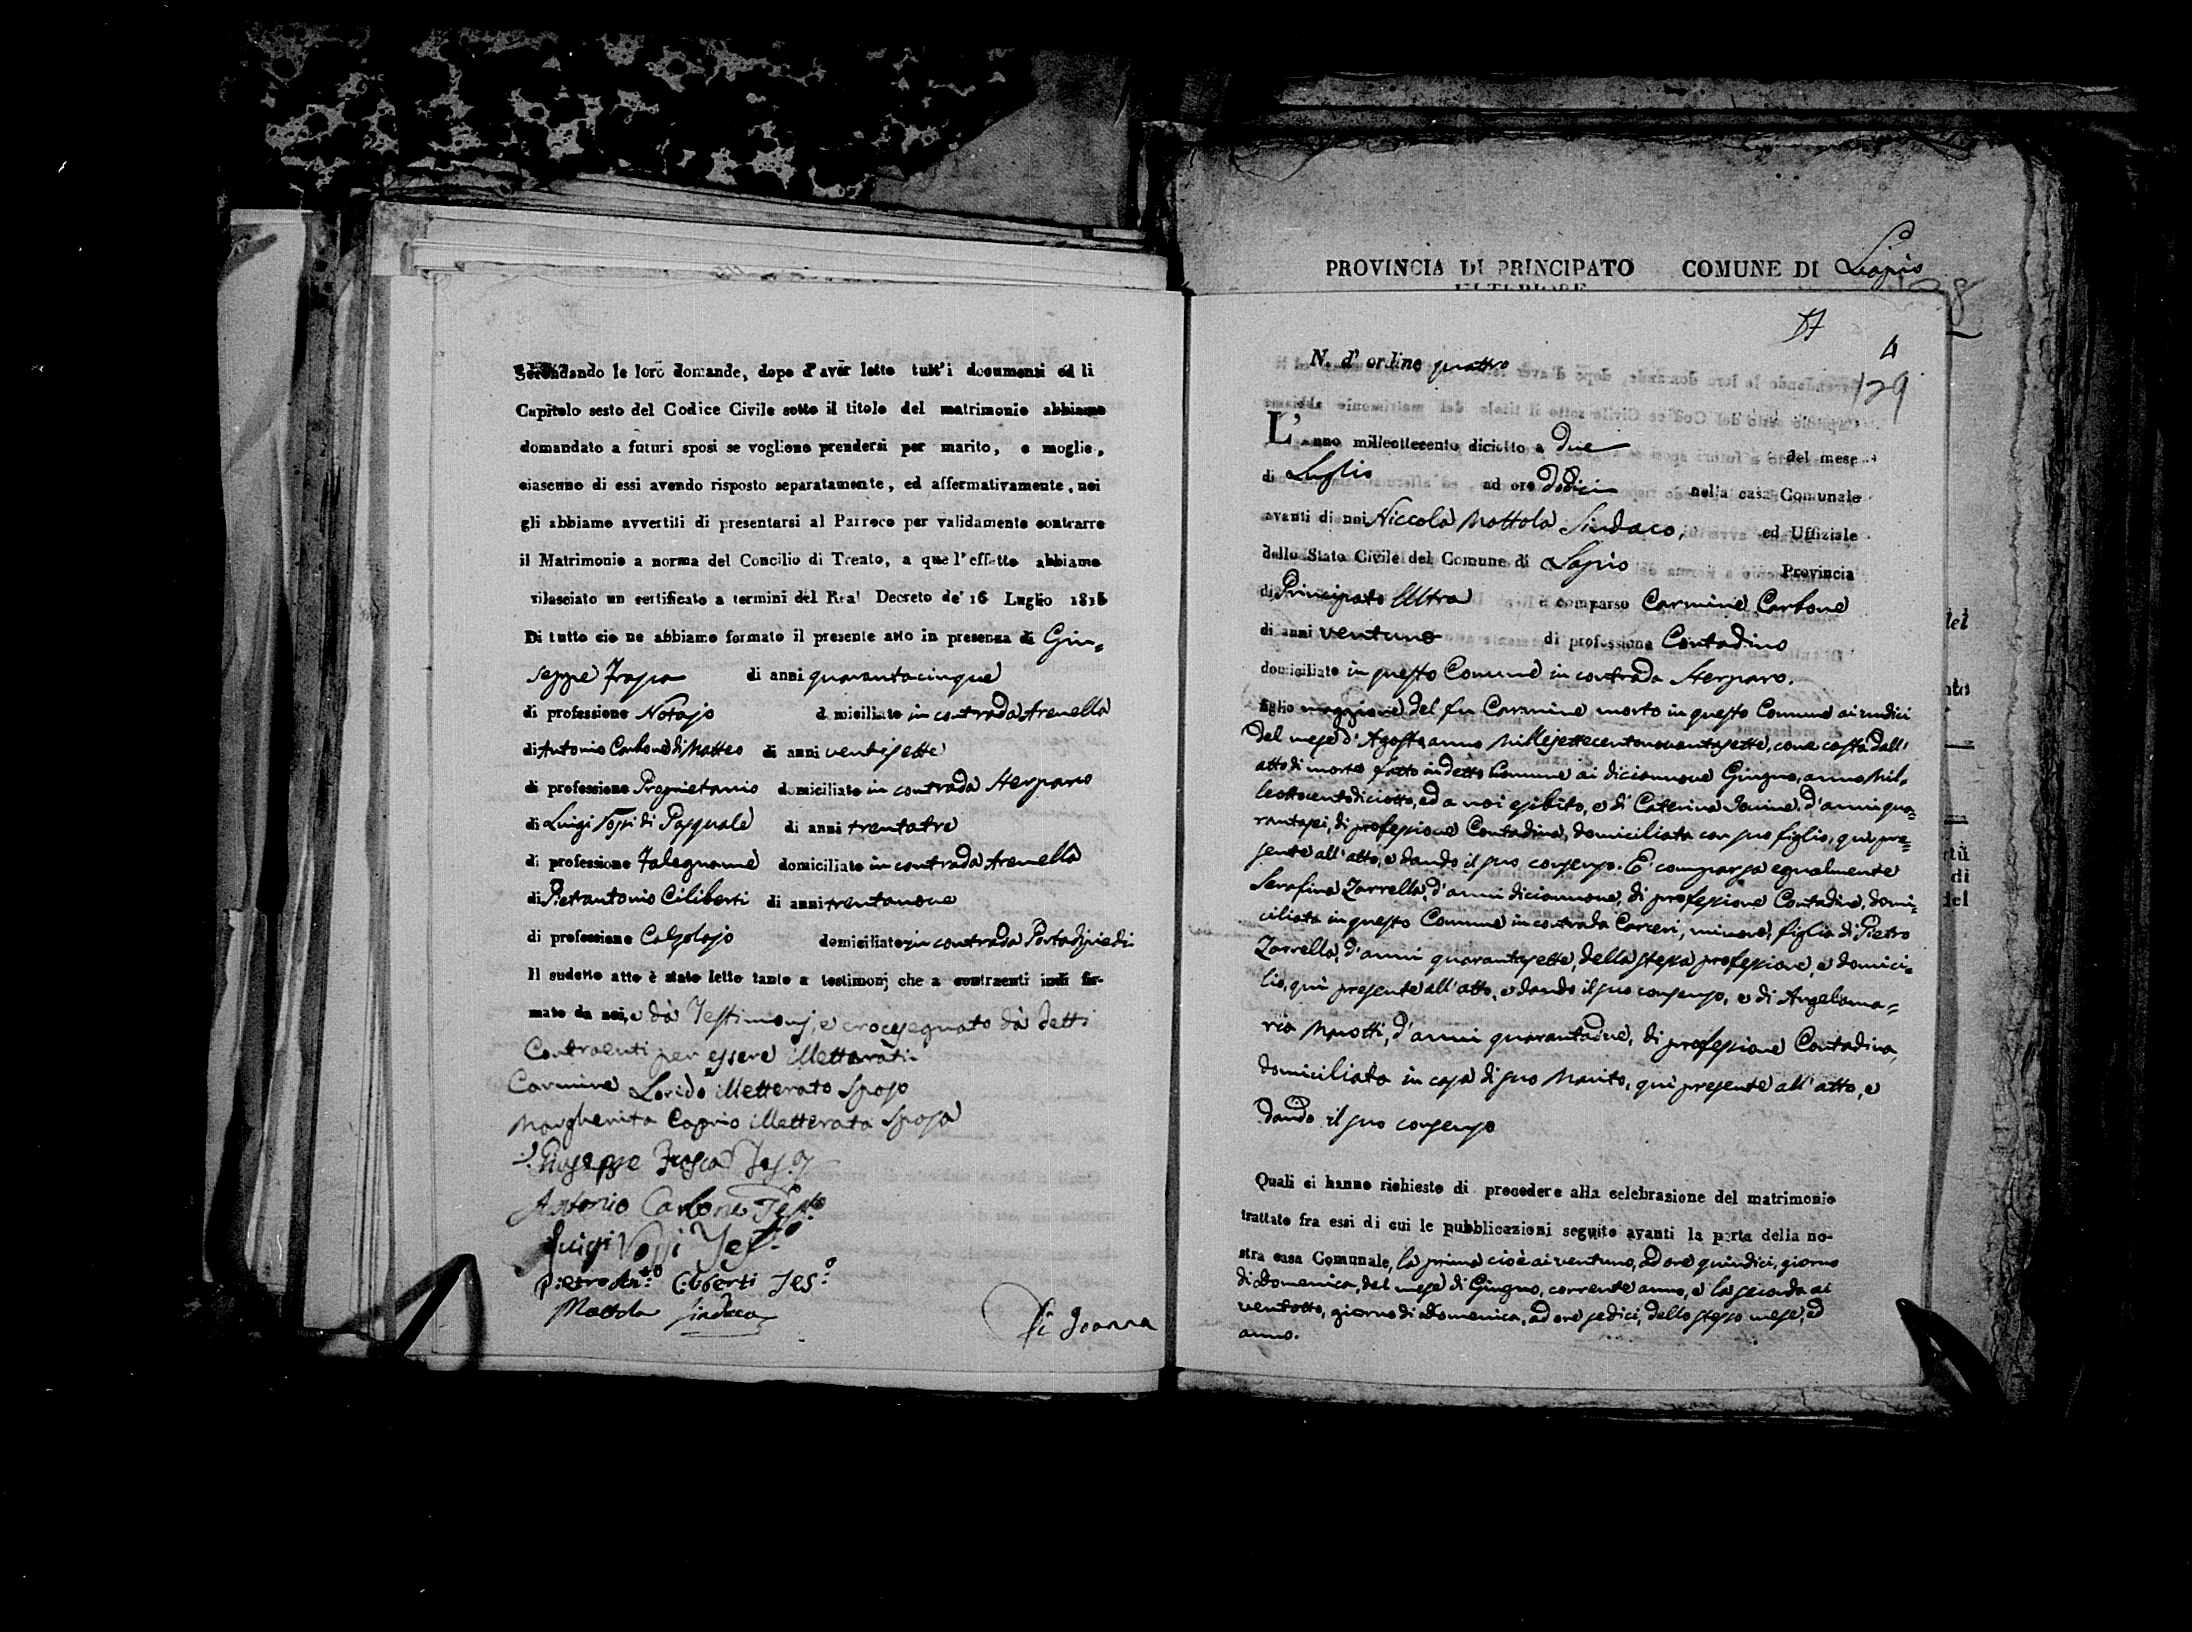 Secondando le loro domande, dopo d'aver letto tutt'i documenti ed il
Capitolo sesto del Codice Civile sotto il titolo del matrimonio abbiamo
domandato a futuri sposi se vogliono prendersi per marito, e moglie,
ciascuno di essi avendo risposto separatamente, ed affermativamente, noi
gli abbiamo avvertiti di presentarsi al Parroco per validamente contrarre
il Matrimonio a norma del Concilio di Trento, a quel'effetto abbiamo
rilasciato un certificato a termini del Real Decreto de' 16 Luglio 1816
Di tutto ciò ne abbiamo formato il presente atto in presenza di Giu=
seppe di anni quarantacinque
di professione Notajo domiciliato in contrada Arenella
di Antonio Carbone di Matteo di anni ventisette
di professione Proprietario domiciliato in contrada Sterparo
di Luigi di Pasquale di anni trentatre
di professione Falegname domiciliato in contrada Arenella
di Pietrantonio Ciliberti di anni trentanove
di professione Calzolajo domiciliato in contrada Portadipiedi
Il sudetto atto è stato letto tanto a testimonj che a contraenti indi fir-
mato da noi, e dà Testimonj, e crocesegnato dà detti
Contraenti per essere illetterati
Carmine illetterato Sposo
Margherita Caprio illetterata Sposa
Giuseppe
Antonio Carbone Testo
Luigi Testo
Pietro Anto Ciliberti Teso
Mottola Sindaco
Di Joanna
PROVINCIA DI PRINCIPATO COMUNE DI Lapio
ULTERIORE
4
129
N. d' ordine quattro
L'Anno milleottocento diciotto a due del mese
di Luglio ad ore dodici nella casa Comunale
avanti di noi Niccola Mottola Sindaco, ed Uffiziale
dello Stato Civile del Comune di Lapio Provincia
di Principato Ultra è comparso Carmine Carbone
di anni ventuno di professione Contadino
domiciliato in questo Comune in contrada Sterparo.
figlio maggiore del fu Carmine morto in questo Comune ai undici
del mese d'Agosto anno millesettecentonovantasette, come costa dall'
atto di morte fatto in detto Comune ai diciannove Giugno, anno mil=
leottocentodiciotto, ed a noi esibito, e di Caterina d'anni qua=
rantasei, di professione Contadina, domiciliata con suo figlio, qui pre=
sente all'atto, e dando il suo consenso. E' comparsa egualmente
Serafina Zarrella, d'anni diciannove, di professione Contadina, domi=
ciliata in questo Comune in contrada Carceri, minore, figlia di Pietro
Zarrella, d'anni quarantasette, della stessa professione, e domici=
lio, qui presente all'atto, e dando il suo consenso, e di Angelama=
ria d'anni quarantadue, di professione Contadina,
domiciliata in casa di suo Marito, qui presente all'atto, e
dando il suo consenso
Quali ci hanno richiesto di procedere alla celebrazione del matrimonio
trattato fra essi di cui le pubblicazioni seguite avanti la porta della no-
stra casa Comunale, la prima cioè ai ventuno, ad ore quindici, giorno
di Domenica, del mese di Giugno, corrente anno, e la seconda ai
ventotto, giorno di Domenica, ad ore sedici, dello stesso mese, ed
anno.